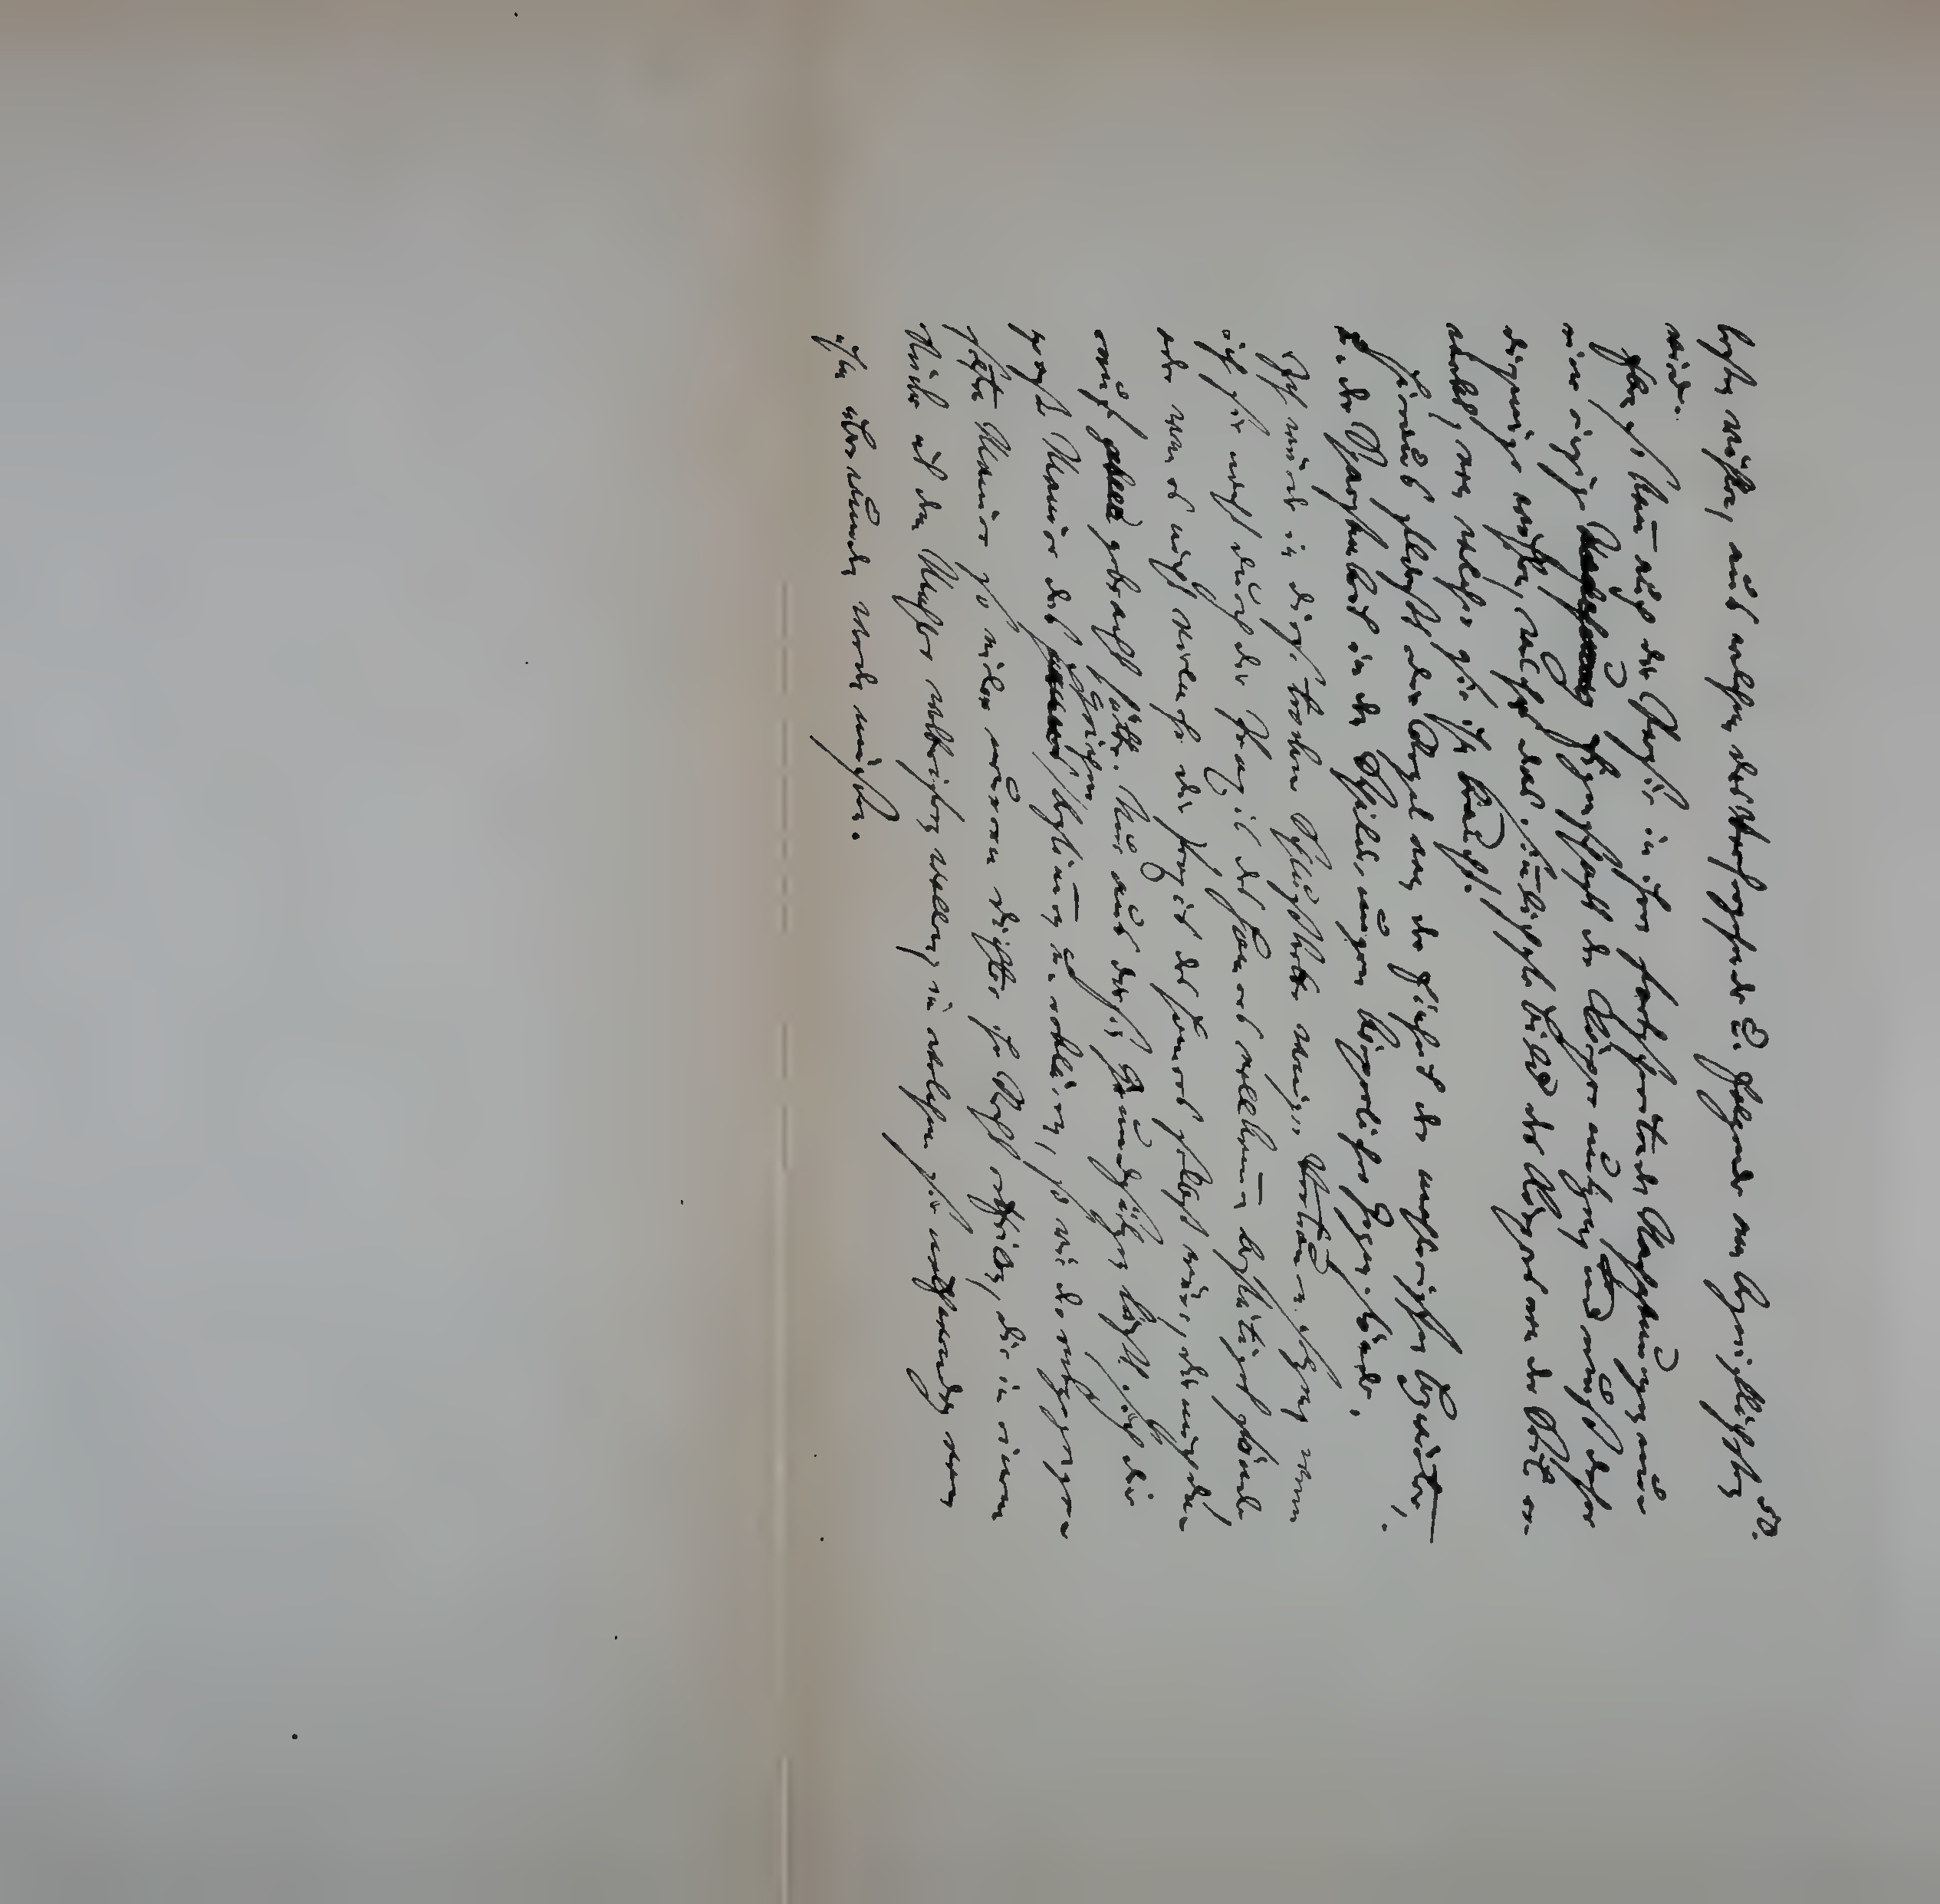 besten wählen, aus welchem das Vorhergehende u. Folgende am begreiflichsten
wird.
Eben so kann auch die Poesie in ihren fortschreitenden Nachahmungen nur
eine einzige Eigenschaft der Körper nutzen, und muß daher
diejenige wählen, welche das sinnlichste Bild des Körpers von der Seite er-
weckt, von welcher sie ihn braucht.
Hieraus fließt die Regel von der Einheit der mahlerischen Beywörter,
u. der Sparsamkeit in den Schilderungen körperlicher Gegenstände.
Ich würde in diese trockene Schlußkette weniger Vertrauen setzen, wenn
ich sie nicht durch die Praxis des Homers vollkommen bestätiget fände,
oder wenn es nicht vielmehr die Praxis des Homers selbst wäre, die mich dar
auf gebracht hätte. Nur aus diesen Grundsätzen läßt sich die
große Manier des Griechen bestimmen u. erklären, so wie der entgegenge-
setzten Manier so vieler neuern Dichter ihr Recht ertheilen, die in einem
Stücke mit dem Mahler wetteifern wollen, in welchem sie nothwendig von
ihm überwunden werden müssen.